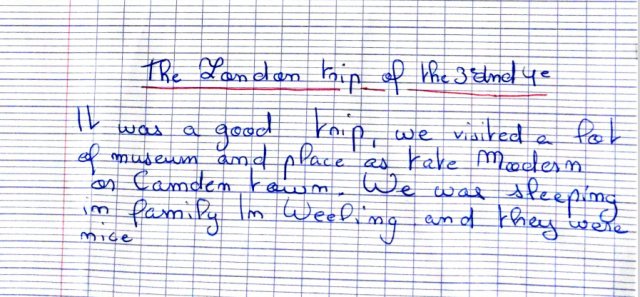 The London trip of the 3e and 4e
It was a good trip, we visited a lot
of museum and place as tate Modern
or Camden town. We was sleeping
in family In Weeling and they were
nice